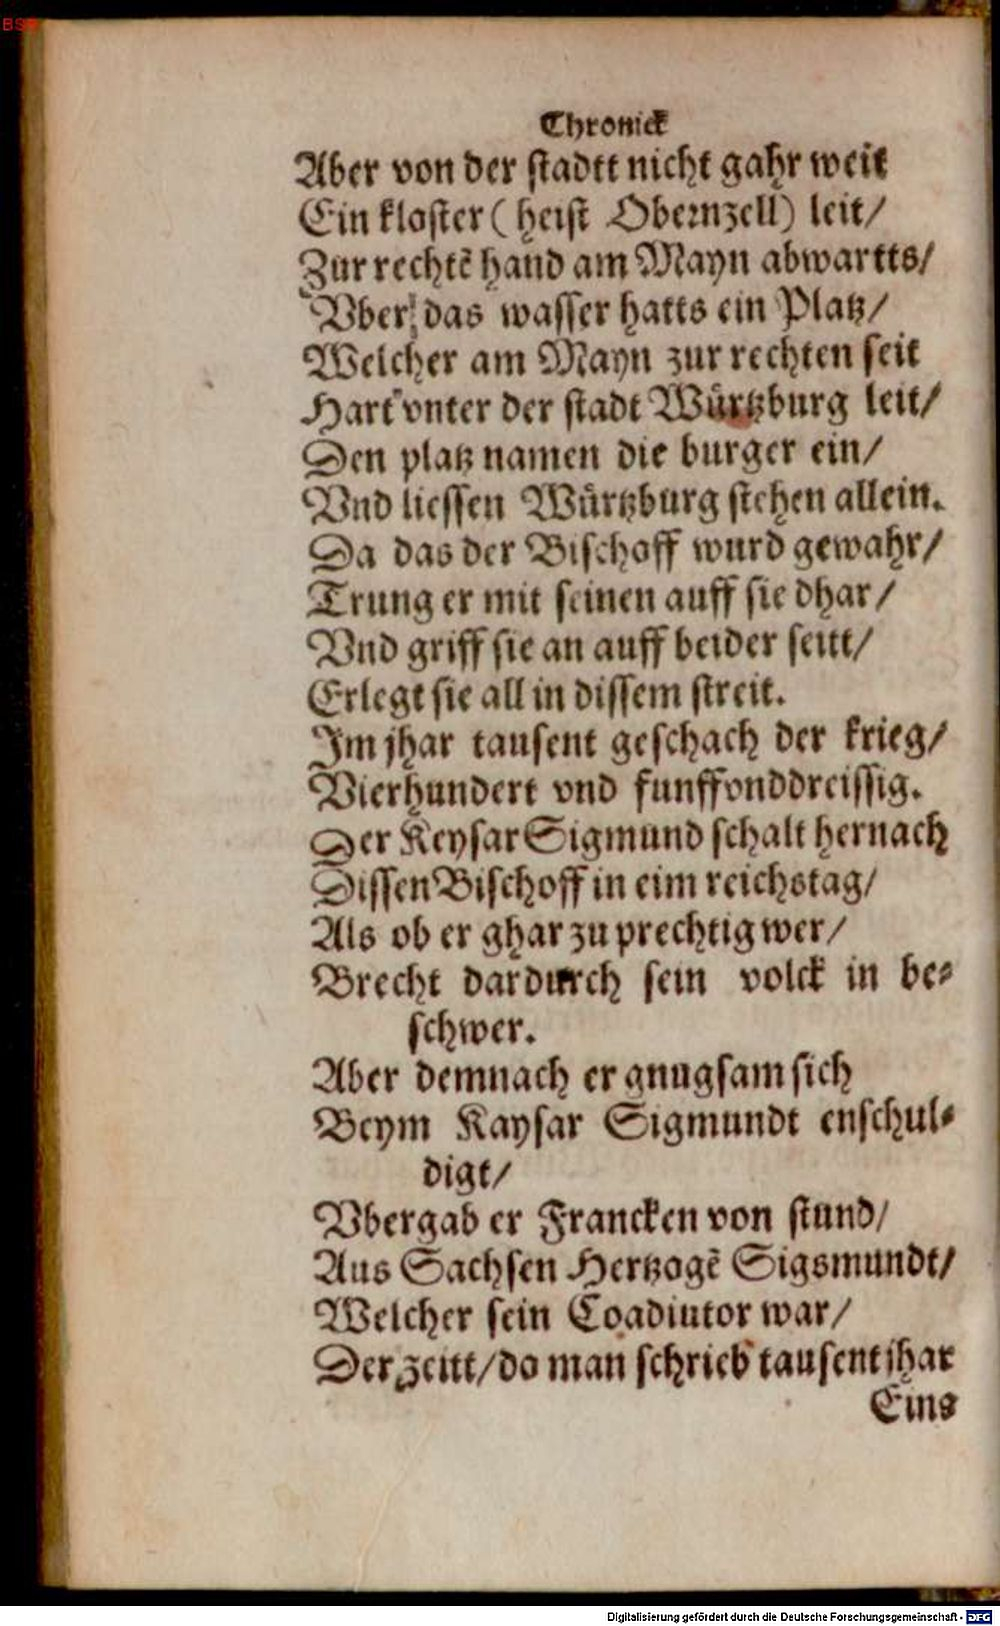 BSB
Chronick
Aber von der stadtt nicht gahr weit
Ein kloster ( heist Obernzell) leit/
Zur rechtẽ hand am Mayn abwartts/
Vber das wasser hatts ein Platz/
Welcher am Mayn zur rechten seit
Hart vnter der stadt Wuͤrtzburg leit/
Den platz namen die burger ein/
Vnd liessen Wuͤrtzburg stehen allein.
Da das der Bischoff wurd gewahr/
Trung er mit seinen auff sie dhar/
Vnd griff sie an auff beider seitt/
Erlegt sie all in dissem streit.
Im jhar tausent geschach der krieg/
Vierhundert vnd funffvnddreissig.
Der Keysar Sigmund schalt hernach
Dissen Bischoff in eim reichstag/
Als ob er ghar zu prechtig wer/
Brecht dardurch sein volck in be⸗
schwer.
Aber demnach er gnugsam sich
Beym Kaysar Sigmundt enschul⸗
digt/
Vbergab er Francken von stund/
Aus Sachsen Hertzogẽ Sigsmundt/
Welcher sein Coadiutor war/
Der zeitt/do man schrieb tausent jhar
Eins
Digitalisierung gefördert durch die Deutsche Forschungsgemeinschaft - DFG